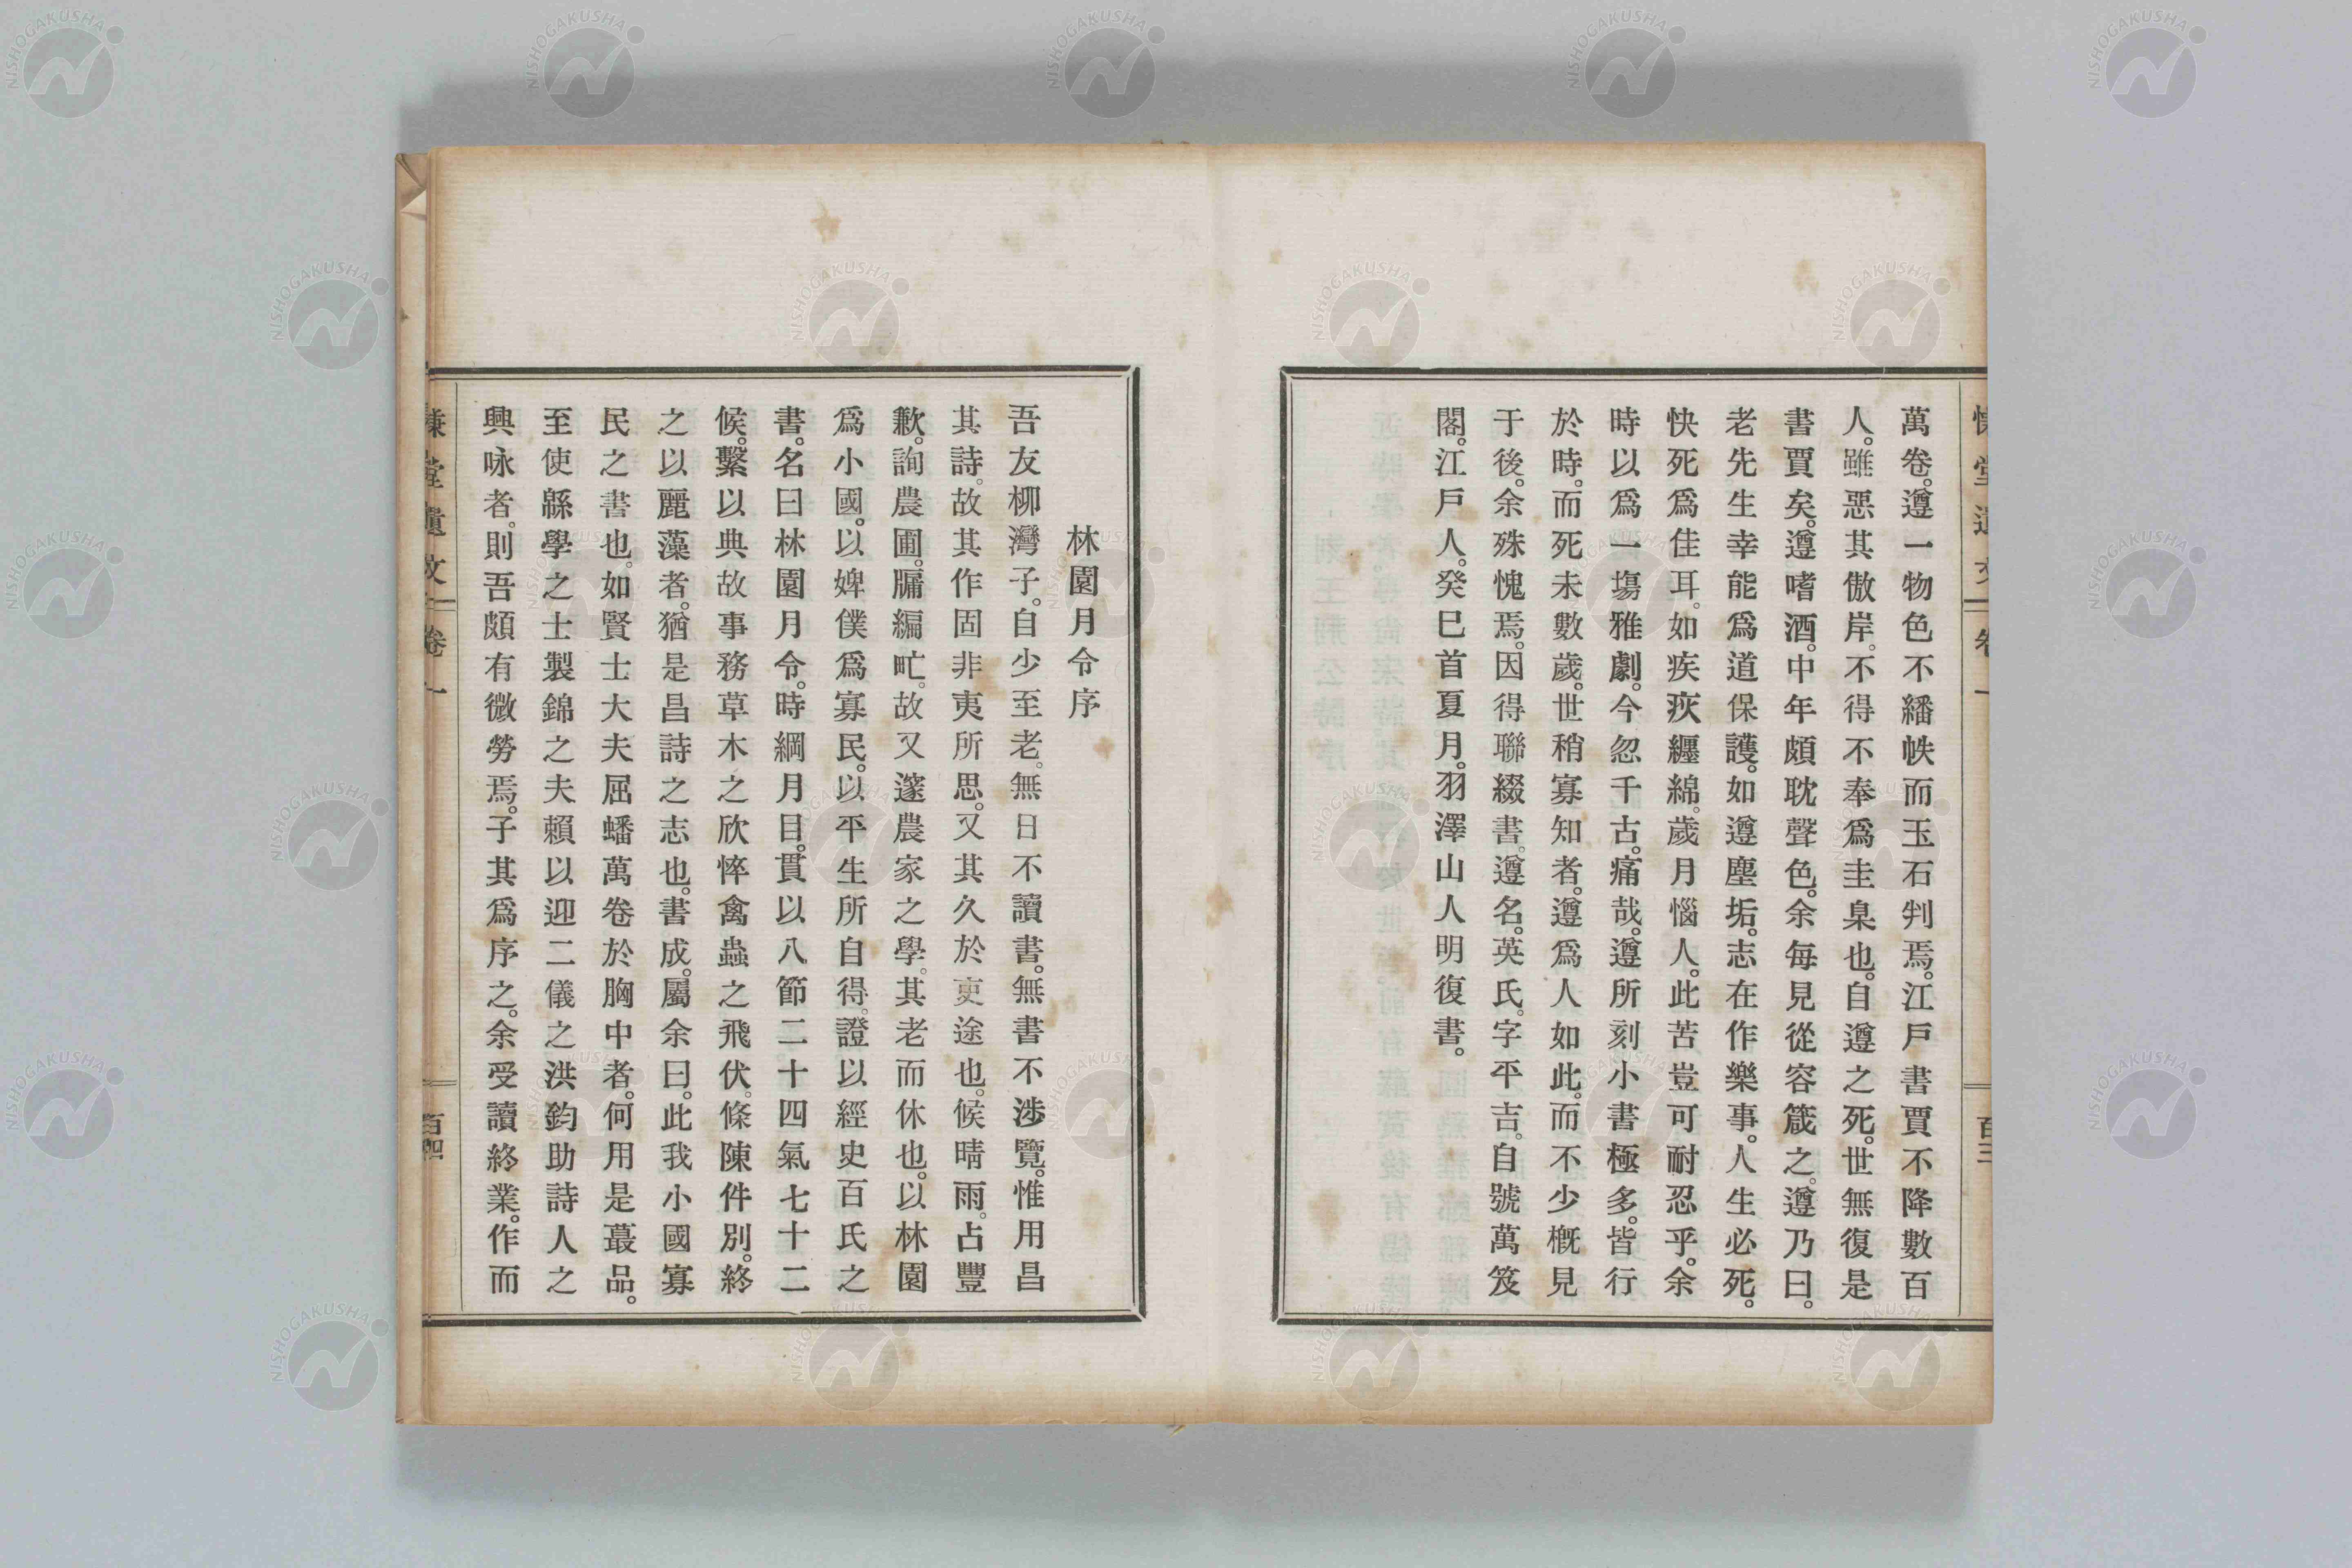 慊堂遺文 卷一 百三
萬卷。遵一物色不繙帙而玉石判焉。江戶書賈不降數百
人。雖惡其傲岸。不得不奉爲圭臬也。自遵之死。世無復是
書賈矣。遵嗜酒。中年頗耽聲色。余每見從容箴之。遵乃曰。
老先生幸能爲道保護。如遵塵垢。志在作樂事。人生必死。
快死爲佳耳。如疾疢纒綿。歲月惱人。此苦豈可耐忍乎。余
時以爲一塲雅劇。今忽千古。痛哉。遵所刻小書極多。皆行
於時。而死未數歲。世稍寡知者。遵爲人如此。而不少槪見
于後。余殊愧焉。因得聯綴書。遵名。英氏。字平吉。自號萬笈
閣。江戶人。癸巳首夏月。羽澤山人明復書。
林園月令序
吾友柳灣子。自少至老。無日不讀書。無書不涉覽。惟用昌
其詩。故其作固非夷所思。又其久於吏途也。候晴雨。占豐
歉。詢農圃。牖編甿。故又邃農家之學。其老而休也。以林園
爲小國。以婢僕爲寡民。以平生所自得。證以經史百氏之
書。名曰林園月令。時綱月目。貫以八節二十四氣七十二
候。繫以典故事務草木之欣悴禽蟲之飛伏。條陳件別。終
之以麗藻者。猶是昌詩之志也。書成。屬余曰。此我小國寡
民之書也。如賢士大夫屈蟠萬卷於胸中者。何用是蕞品。
至使緜學之士製錦之夫賴以迎二儀之洪鈞助詩人之
興咏者。則吾頗有微勞焉。子其爲序之。余受讀終業。作而
慊堂遺文 卷一 百四